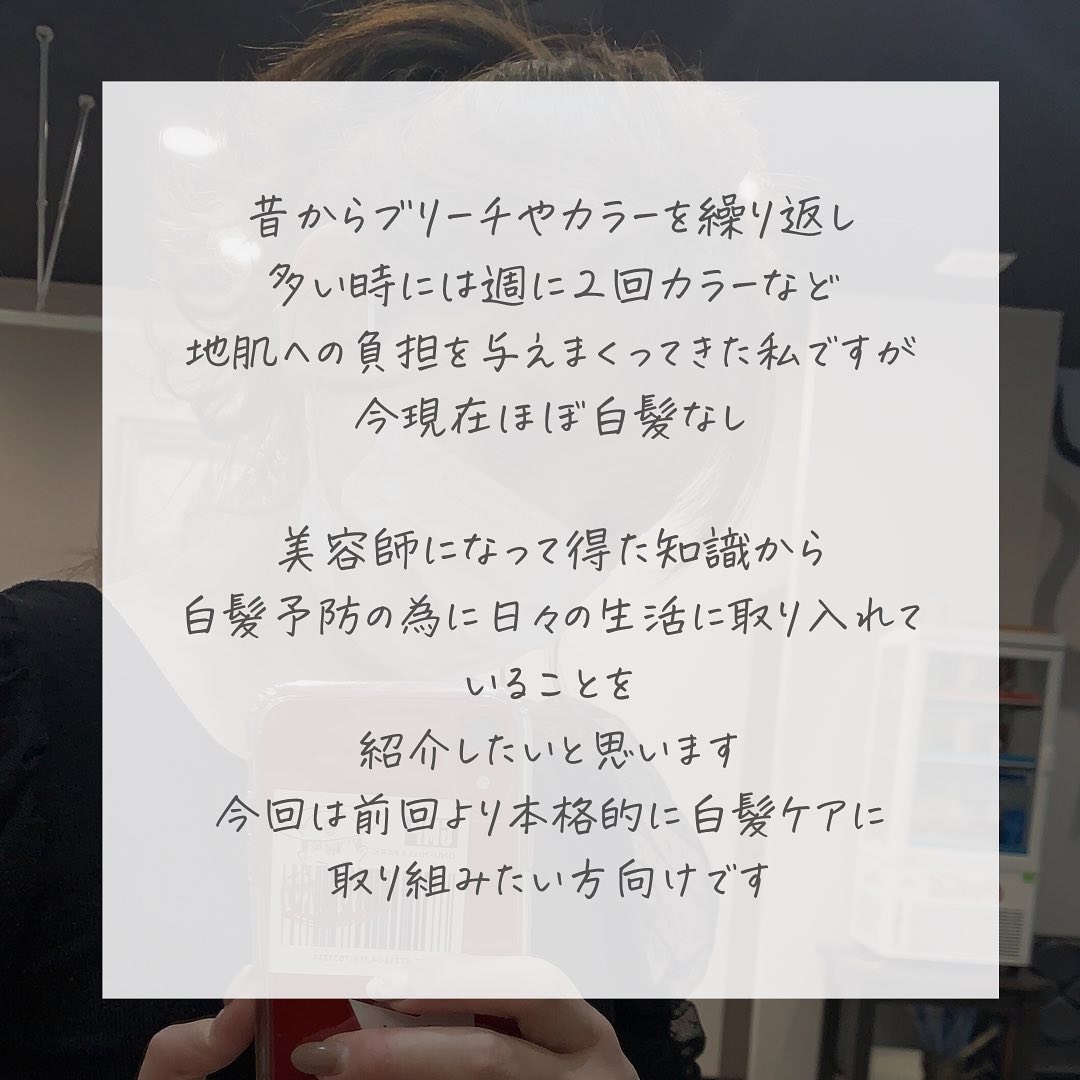 昔からブリーチやカラーを繰り返し
多い時には週に2回カラーなど
地肌への負担を与えまくってきた私ですが
今現在ほぼ白髪なし
美容師になって得た知識から
白髪予防の為に日々の生活に取り入れて
いることを
紹介したいと思います
今回は前回より本格的に白髪ケアに
取り組みたい方向けです